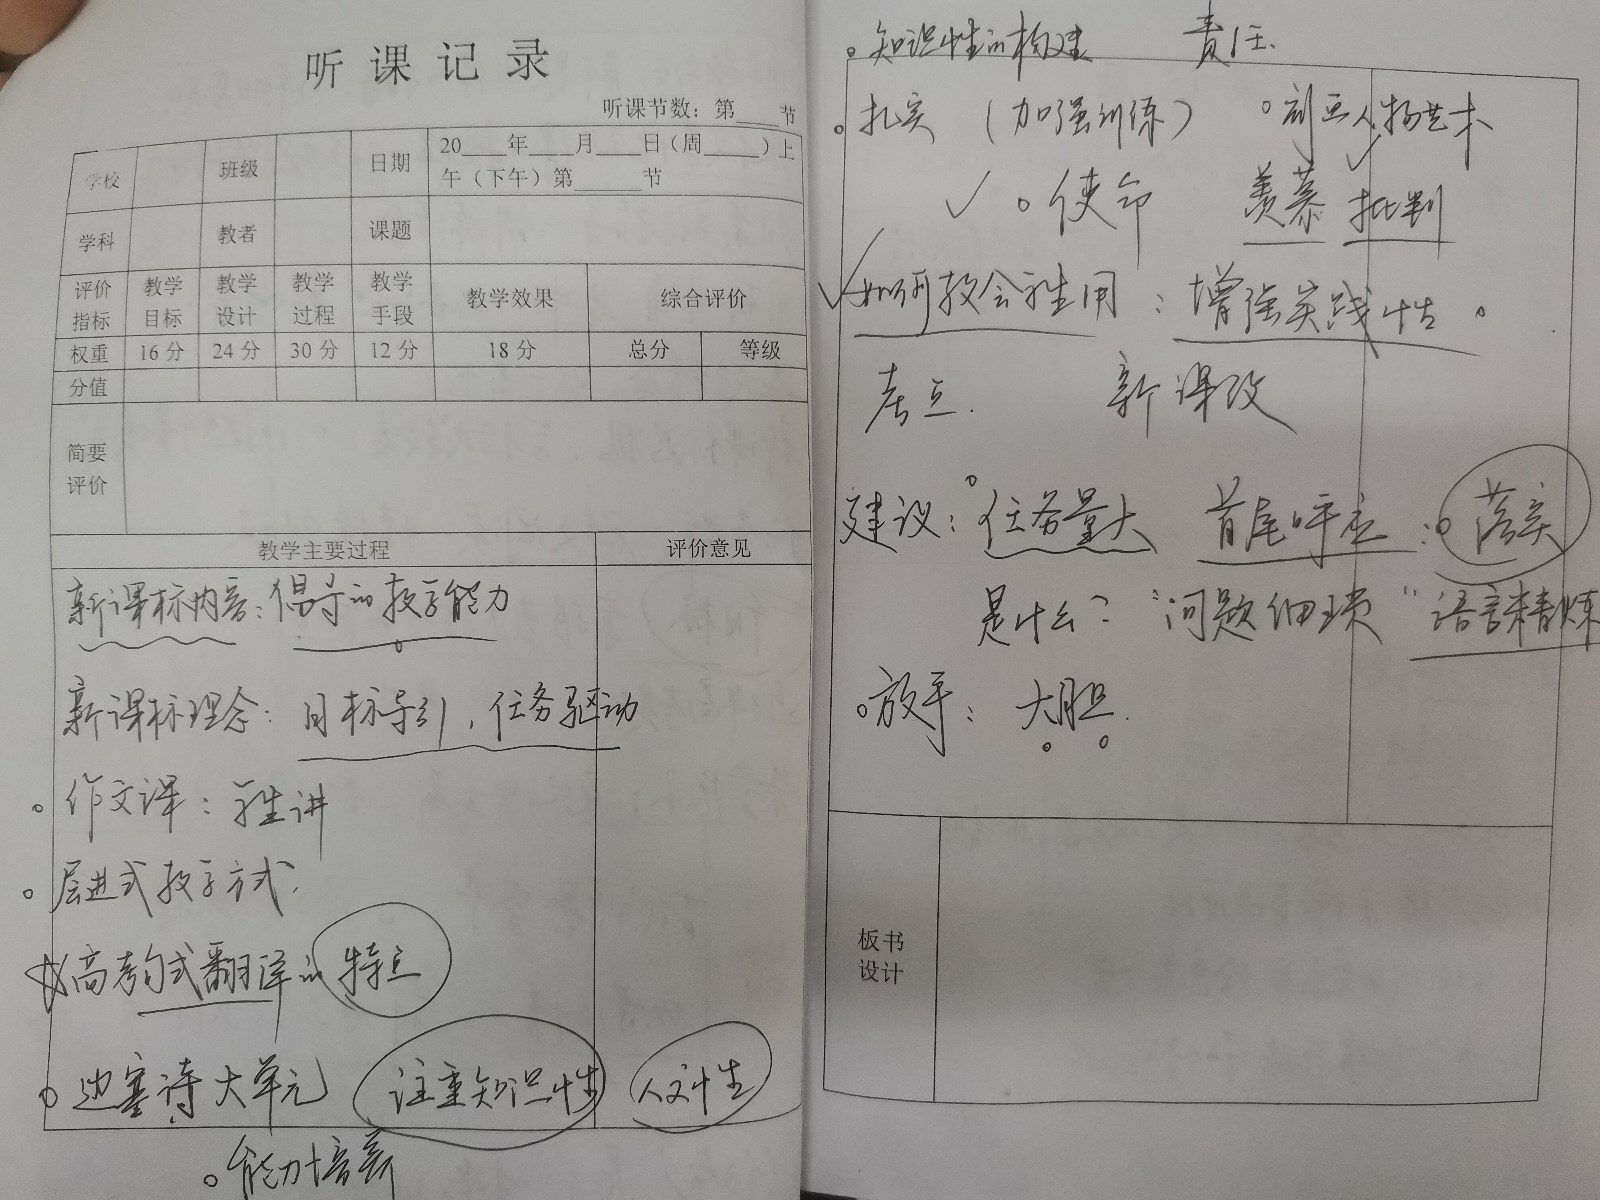 听课记录
听课节数：第____节
学校 班级 日期 20____年____月____日（周____）上
午（下午）第____节
学科 教者 课题
评价指标 教学目标 教学设计 教学过程 教学手段 教学效果 综合评价
权重 16分 24分 30分 12分 18分 总分 等级
分值
简要评价
教学主要过程 评价意见
新课标内容：倡导的教学能力
新课标理念：目标导引，任务驱动
。作文课：学生讲
。层进式教学方式.
☆高考句式翻译的特点
。边塞诗大单元 注重知识性 人文性
。能力培养
。知识性的构建 责任.
。扎实（加强训练） 。刻画人物艺术
✓ 。使命 羡慕 批判
✓如何教会学生用：增强实践性。
考点. 新课改
建议：任务量大 首尾呼应：。落实
是什么？“问题细琐”语言精炼
。放手：大胆.
板书设计